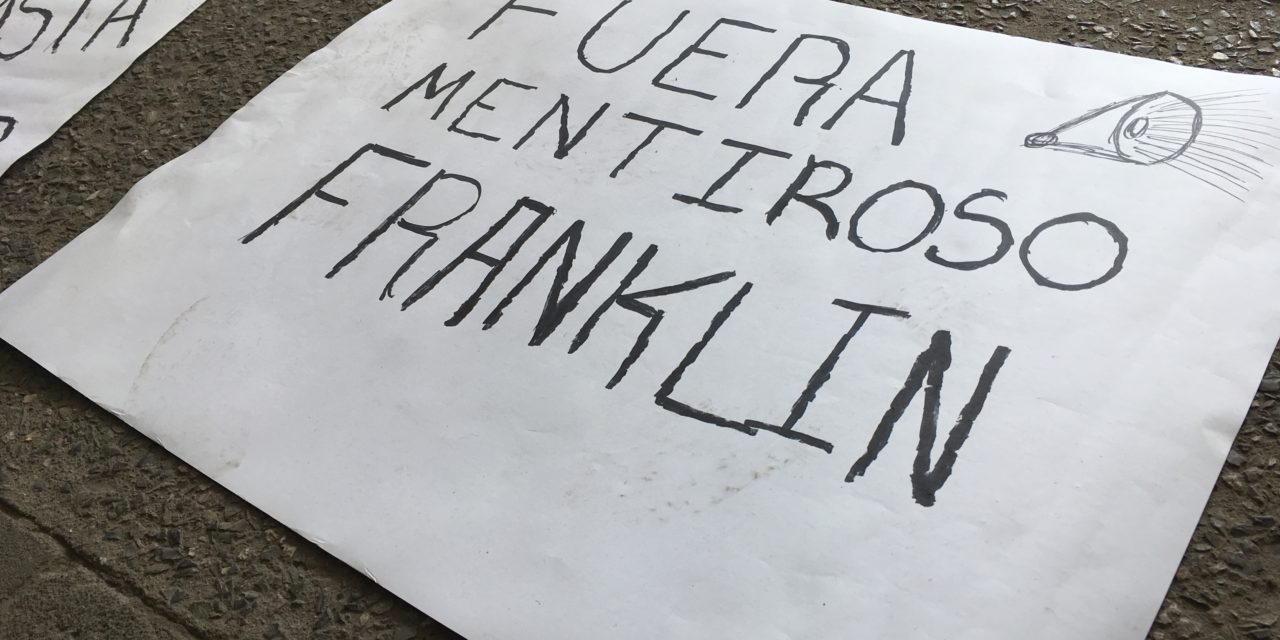 FUERA
MENTIROSO
FRANKLIN